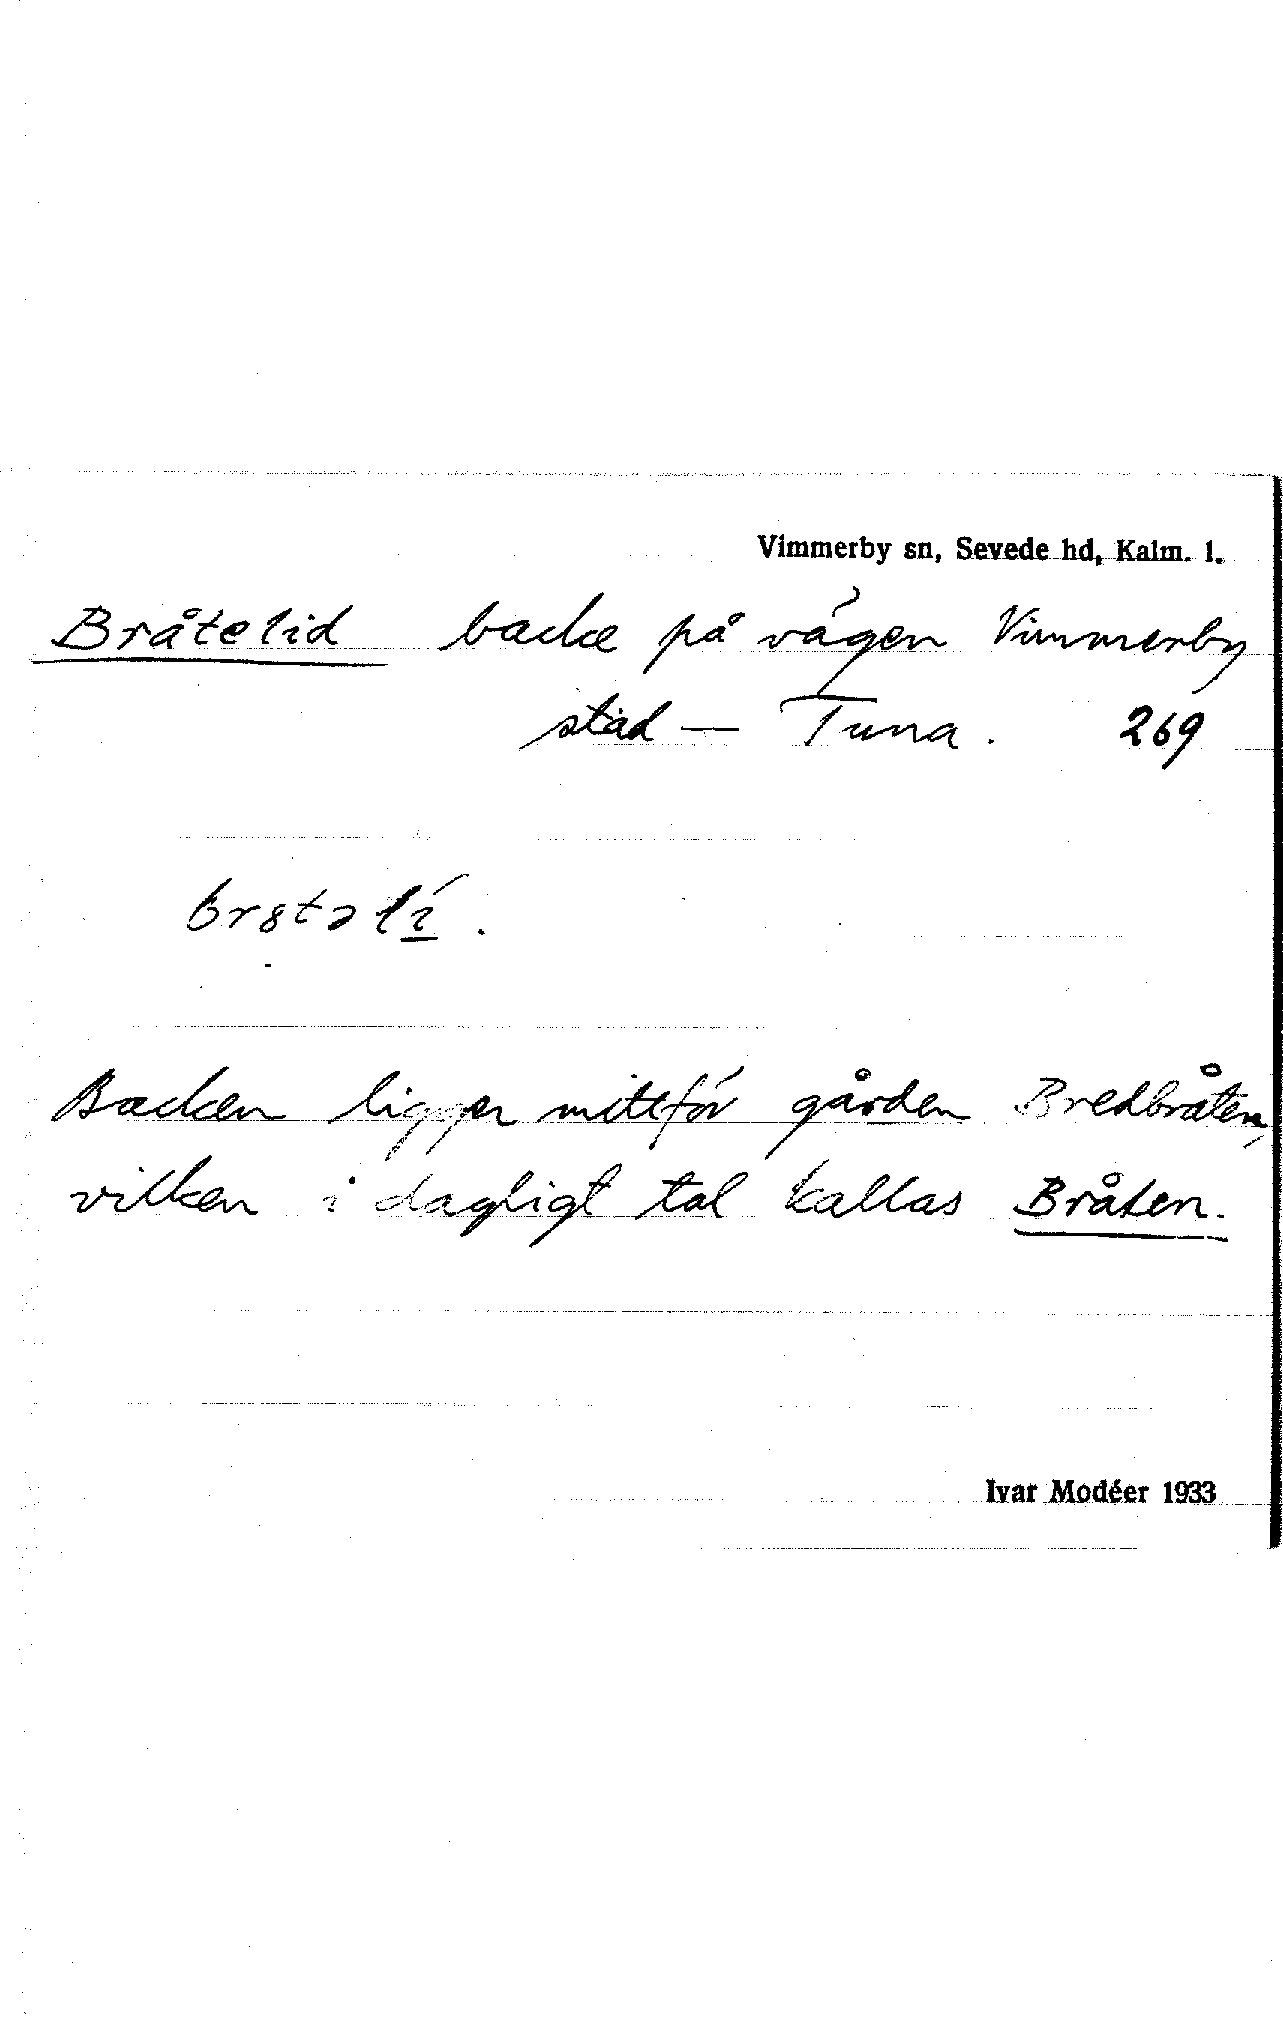 Vimmerby sn, Sevede hd, Kalm. l.
Bråtelid backe på vägen Vimmerby
stad — Tuna. 269
Backen ligger mittför gården Bredbråten,
vilken i dagligt tal kallas Bråten.
Ivar Modéer 1933